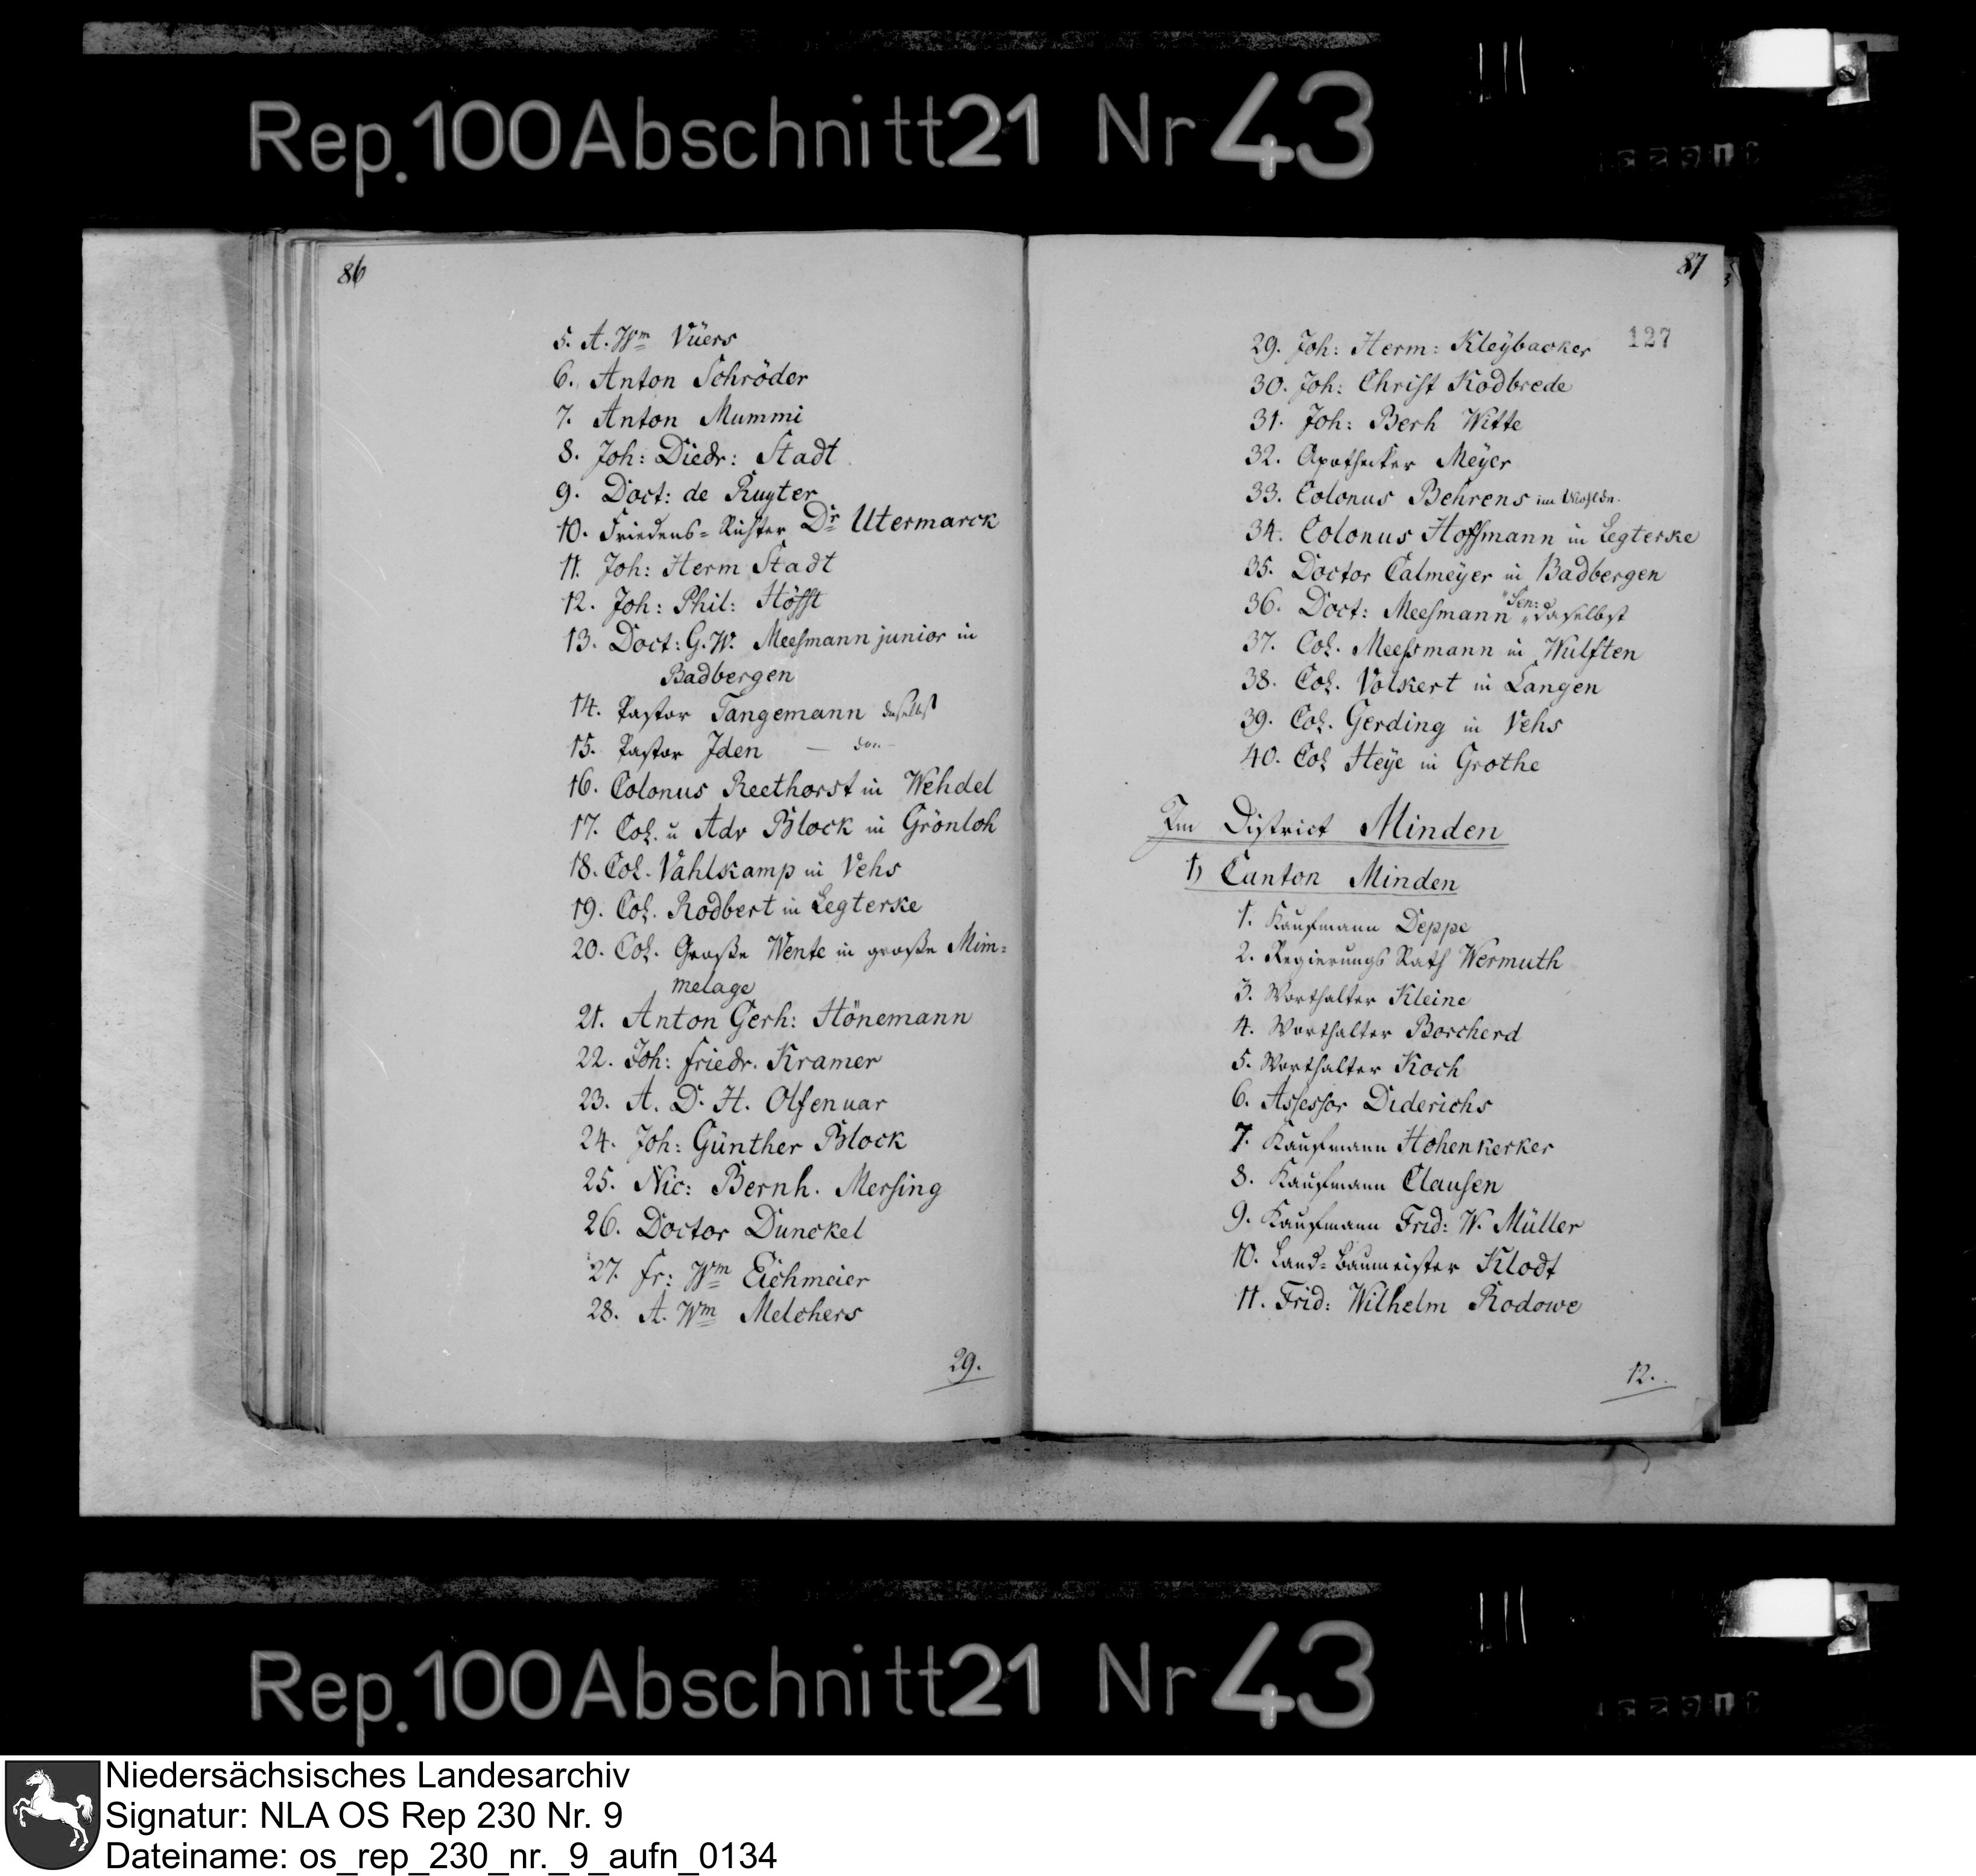 Rep.100Abschnitt21 Nr 43
86
5. A. Wm Vüers
6. Anton Schröder
7. Anton Mummi
8. Joh: Diedr: Stadt
9. Doct: de Ruyter
10. Friedens=Richter Dr Utermarck
11. Joh: Herm Stadt
12. Joh: Phil: Höfft
13. Doct: G. W. Meesmann junior in
Badbergen
14. Pastor Tangemann daselbst
15. Pastor Iden —
16. Colonus Reethorst in Wehdel
17. Col. u Adv Block in Grönloh
18. Col. Vahlkamp in Vehs
19. Col. Rodbert in Legterke
20. Col. Große Wente in große Mim=
melage
21. Anton Gerh: Hönemann
22. Joh: Friedr. Kramer
23. A. D. H. Olfenuar
24. Joh: Günther Block
25. Nic: Bernh. Mersing
26. Doctor Dunckel
27. Fr: Wm Eichmeier
28. A. Wm Melchers
29.
87
127
29. Joh: Herm: Kleÿbacker
30. Joh: Christ Kodbrede
31. Joh: Berh Witte
32. Apotheker Meÿer
33. Colonus Behrens im
34. Colonus Hoffmann in Legterke
35. Doctor Calmeÿer in Badbergen
36. Doct: Meesmann "Sen:" daselbst
37. Col. Meessmann in Wulften
38. Col. Volkert in Langen
39. Col. Gerding in Vehs
40. Col Heÿe in Grothe
Im District Minden
1) Canton Minden
1. Kaufmann Deppe
2. Regierungs Rath Wermuth
3. Worthalter Kleine
4. Worthalter Borcherd
5. Worthalter Koch
6. Assessor Diderichs
7. Kaufmann Hohenkerker
8. Kaufmann Clausen
9. Kaufmann Frid: W. Müller
10. Land=Baumeister Klodt
11. Frid: Wilhelm Rodowe
12.
Rep.100Abschnitt21 Nr 43
Niedersächsisches Landesarchiv
Signatur: NLA OS Rep 230 Nr. 9
Dateiname: os_rep_230_nr._9_aufn_0134